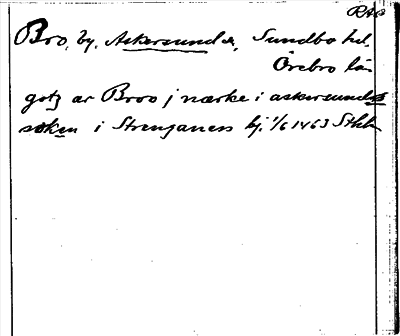 RAP
Bro, by, Askersunds, Sundbo hd,
Örebro län
gotz ar Broo j nærke i askersunds
sokn i Strengenæs bj. 1/6 1463 Sthlm